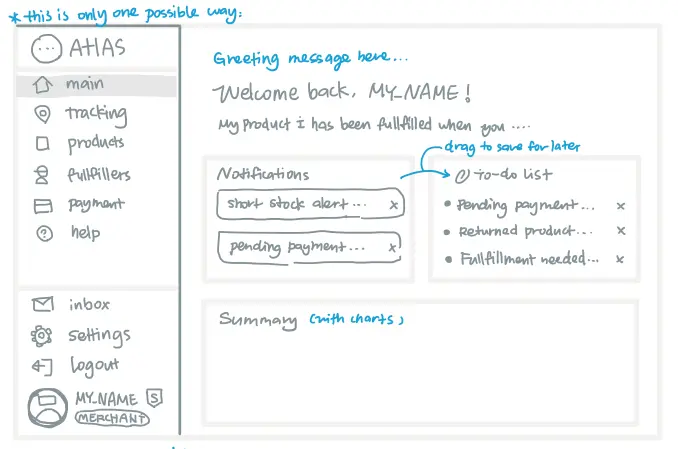 * this is only one possible way:
ATLAS
main
tracking
products
fullfillers
payment
help
inbox
settings
logout
MY_NAME S
MERCHANT
Greeting message here...
Welcome back, MY_NAME!
My Product 1 has been fullfilled when you ....
drag to save for later
Notifications
short stock alert... x
pending payment... x
To-do list
• Pending payment... x
• Returned product... x
• Fullfillment needed... x
Summary (with charts)